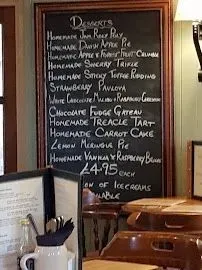 Desserts
Homemade Jam Roly Poly
Homemade Danish Apple Pie
Homemade Apple & Forest Fruit Crumble
Homemade Sherry Trifle
Homemade Sticky Toffee Pudding
Strawberry Pavlova
White Chocolate & Raspberry
Chocolate Fudge Gateau
Homemade Treacle Tart
Homemade Carrot Cake
Lemon Meringue Pie
Homemade Vanilla & Raspberry
£4.95 each
ion of Icecreams
ailable